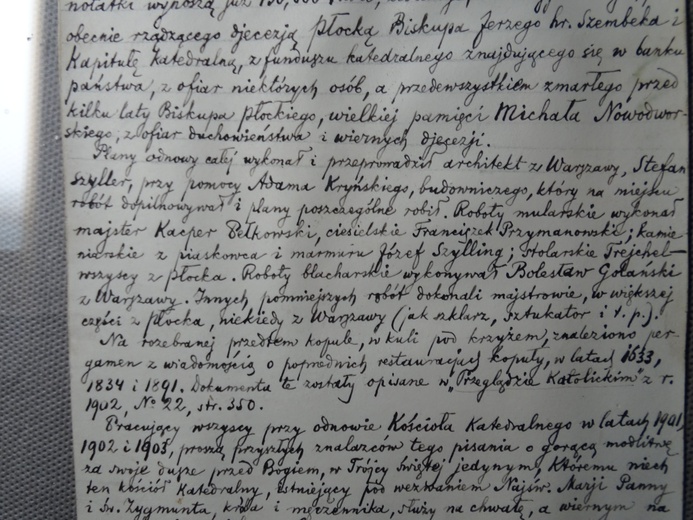 notatki wynoszą już
obecnie rządzącego djecezją płocką Biskupa Jerzego hr. Szembeka i
Kapitułę Katedralną, z funduszu katedralnego znajdującego się w banku
państwa, z ofiar niektórych osób, a przedewszystkiem zmarłego przed
kilku laty Biskupa płockiego, wielkiej pamięci Michała Nowodwor-
skiego, z ofiar duchowieństwa i wiernych djecezji.
Plany odnowy całej wykonał i przeprowadził architekt z Warszawy, Stefan
Szyller, przy pomocy Adama Kryńskiego, budowniczego, który na miejscu
robót dopilnowywał i plany poszczególne robił. Roboty mularskie wykonał
majster Kacper Pełkowski, ciesielskie Franciszek Przymanowski; kamie
niarskie z piaskowca i marmuru Józef Szylling; stolarskie Trejchel—
wszyscy z Płocka. Roboty blacharskie wykonywał Bolesław Golański
z Warszawy. Innych pomniejszych robót dokonali majstrowie, w większej
części z Płocka, niekiedy z Warszawy (jak szklarz, sztukator i t. p.).
Na rozebranej przedtem kopule, w kuli pod krzyżem, znaleziono per-
gamen z wiadomością o poprzednich restauracjach kopuły, w latach
1834 i 1891. Dokumenta te zostały opisane w „Przeglądzie Katolickim" z r.
1902, № 22, str. 350.
Pracujący wszyscy przy odnowie Kościoła Katedralnego w latach 1901,
1902 i 1903, proszą przyszłych znalazców tego pisania o gorącą modlitwę
za swoje dusze przed Bogiem, w Trójcy Świętej jedynym, Któremu niech
ten kościół Katedralny, istniejący pod wezwaniem Najśw. Marji Panny
i Św. Zygmunta, króla i męczennika, służy na chwałę, a wiernym na